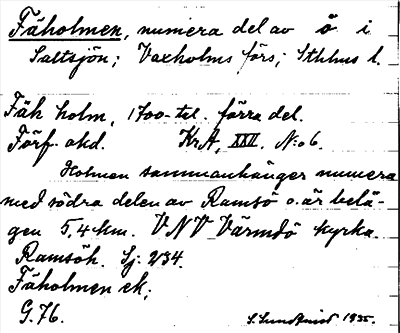 Fäholmen, numera del av ö i
Saltsjön; Vaxholms förs; Sthlms l.
Fäh holm, 1700-tal. förra del.
Förf. okd. Kr A, XXII, No 6.
Holmen sammanhänger numera
med södra delen av Ramsö o. är belä-
gen 5,4 km. VNV Värmdö kyrka.
Ramsök. Sj. 234.
Fäholmen ek;
G. 76. S. Sundquist 1935.